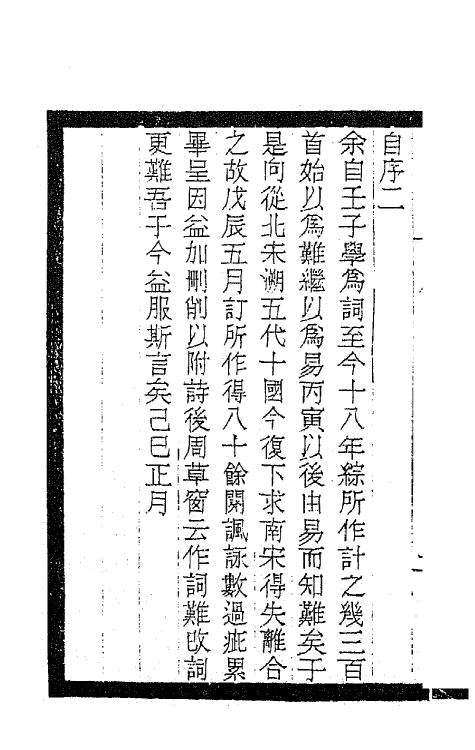 自序二
余自壬子學爲詞至今十八年綜所作計之幾三百
首始以爲難繼以爲易丙寅以後由易而知難矣于
是向從北宋溯五代十國今復下求南宋得失離合
之故戊辰五月訂所作得八十餘闋諷詠數過疵累
畢呈因益加刪削以附詩後周草窗云作詞難改詞
更難吾于今益服斯言矣己巳正月